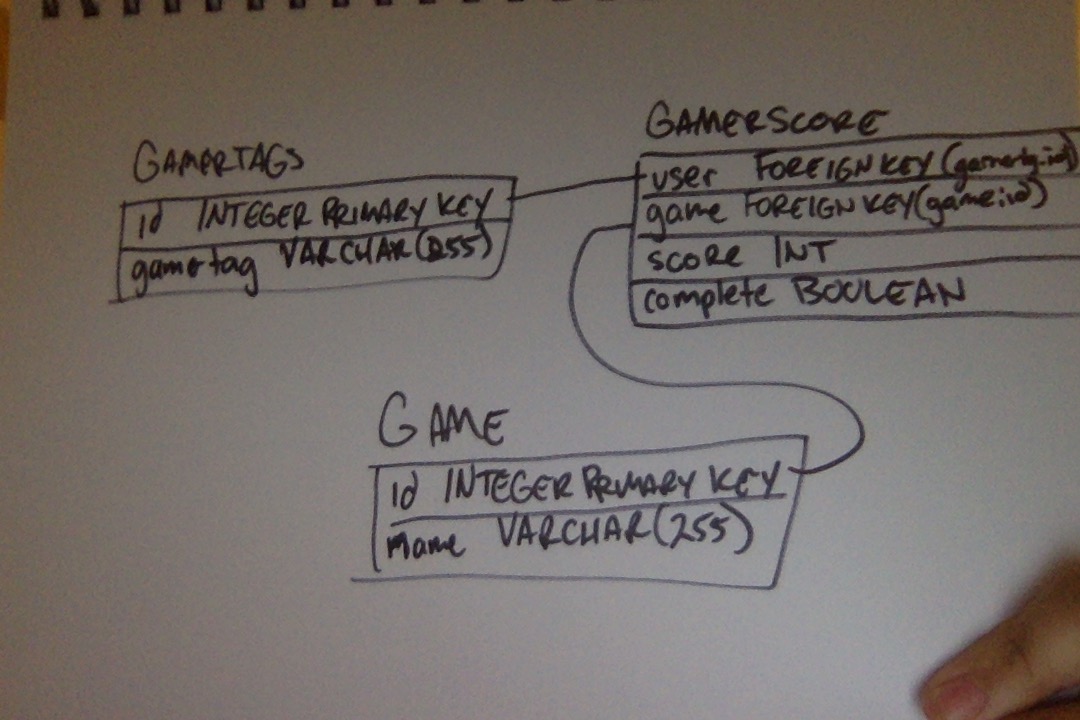 GAMERTAGS
id INTEGER PRIMARY KEY
gamertag VARCHAR(255)
GAMERSCORE
user FOREIGN KEY(gamertg.id)
game FOREIGN KEY(game.id)
score INT
complete BOOLEAN
GAME
id INTEGER PRIMARY KEY
name VARCHAR(255)